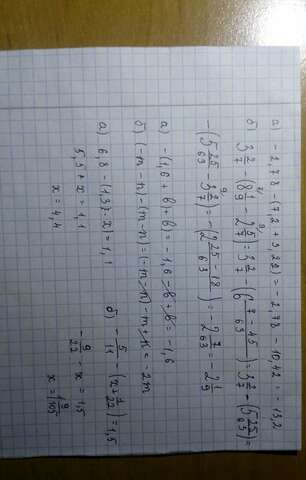 а) -2,78 - (7,2 + 3,22) = -2,78 - 10,42 = -13,2
б) 3 2/7 - (8 1/9 - 2 5/7) = 3 2/7 - (6 7-45/63) = 3 2/7 - (5 25/63) =
-(5 25/63 - 3 2/7) = -(2 25-18/63) = -2 7/63 = -2 1/9
а) -(1,6 + b) + b = -1,6 - b + b = -1,6
б) (-m-n) - (m-n) = (-m-n) - m + n = -2m
а) 6,8 - (1,3 - x) = 1,1
5,5 + x = 1,1
x = 4,4
б) -5/11 - (x + /22) = 1,5
-9/22 - x = 1,5
x =